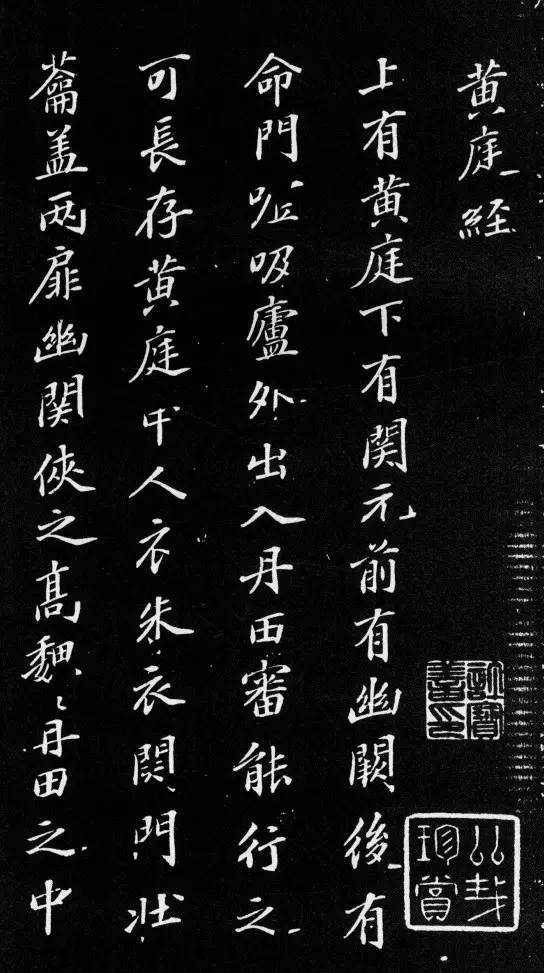 黄庭経
上有黄庭下有関元前有幽闕後有
命門嘘吸廬外出入丹田審能行之
可長存黄庭中人衣朱衣関門壮
蘥盖两扉幽関俠之高魏〻丹田之中
珍賞